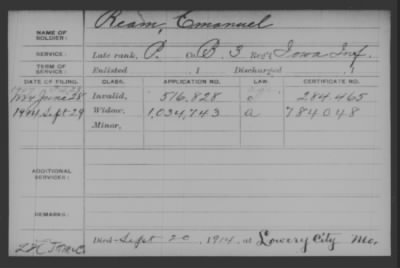 NAME OF SOLDIER: Ream, Emanuel
SERVICE: Late rank, P. Co. B, 3 Reg't Iowa Inf.
TERM OF SERVICE: Enlisted , 1 Discharged , 1
DATE OF FILING. CLASS. APPLICATION NO. LAW. CERTIFICATE NO.
1884 June 28 Invalid, 516,828 284.465
1914 Sept 29 Widow, 1,034,743 a 784048
Minor,
ADDITIONAL SERVICES:
REMARKS:
Died Sept 20, 1914, at Lowery City Mo.